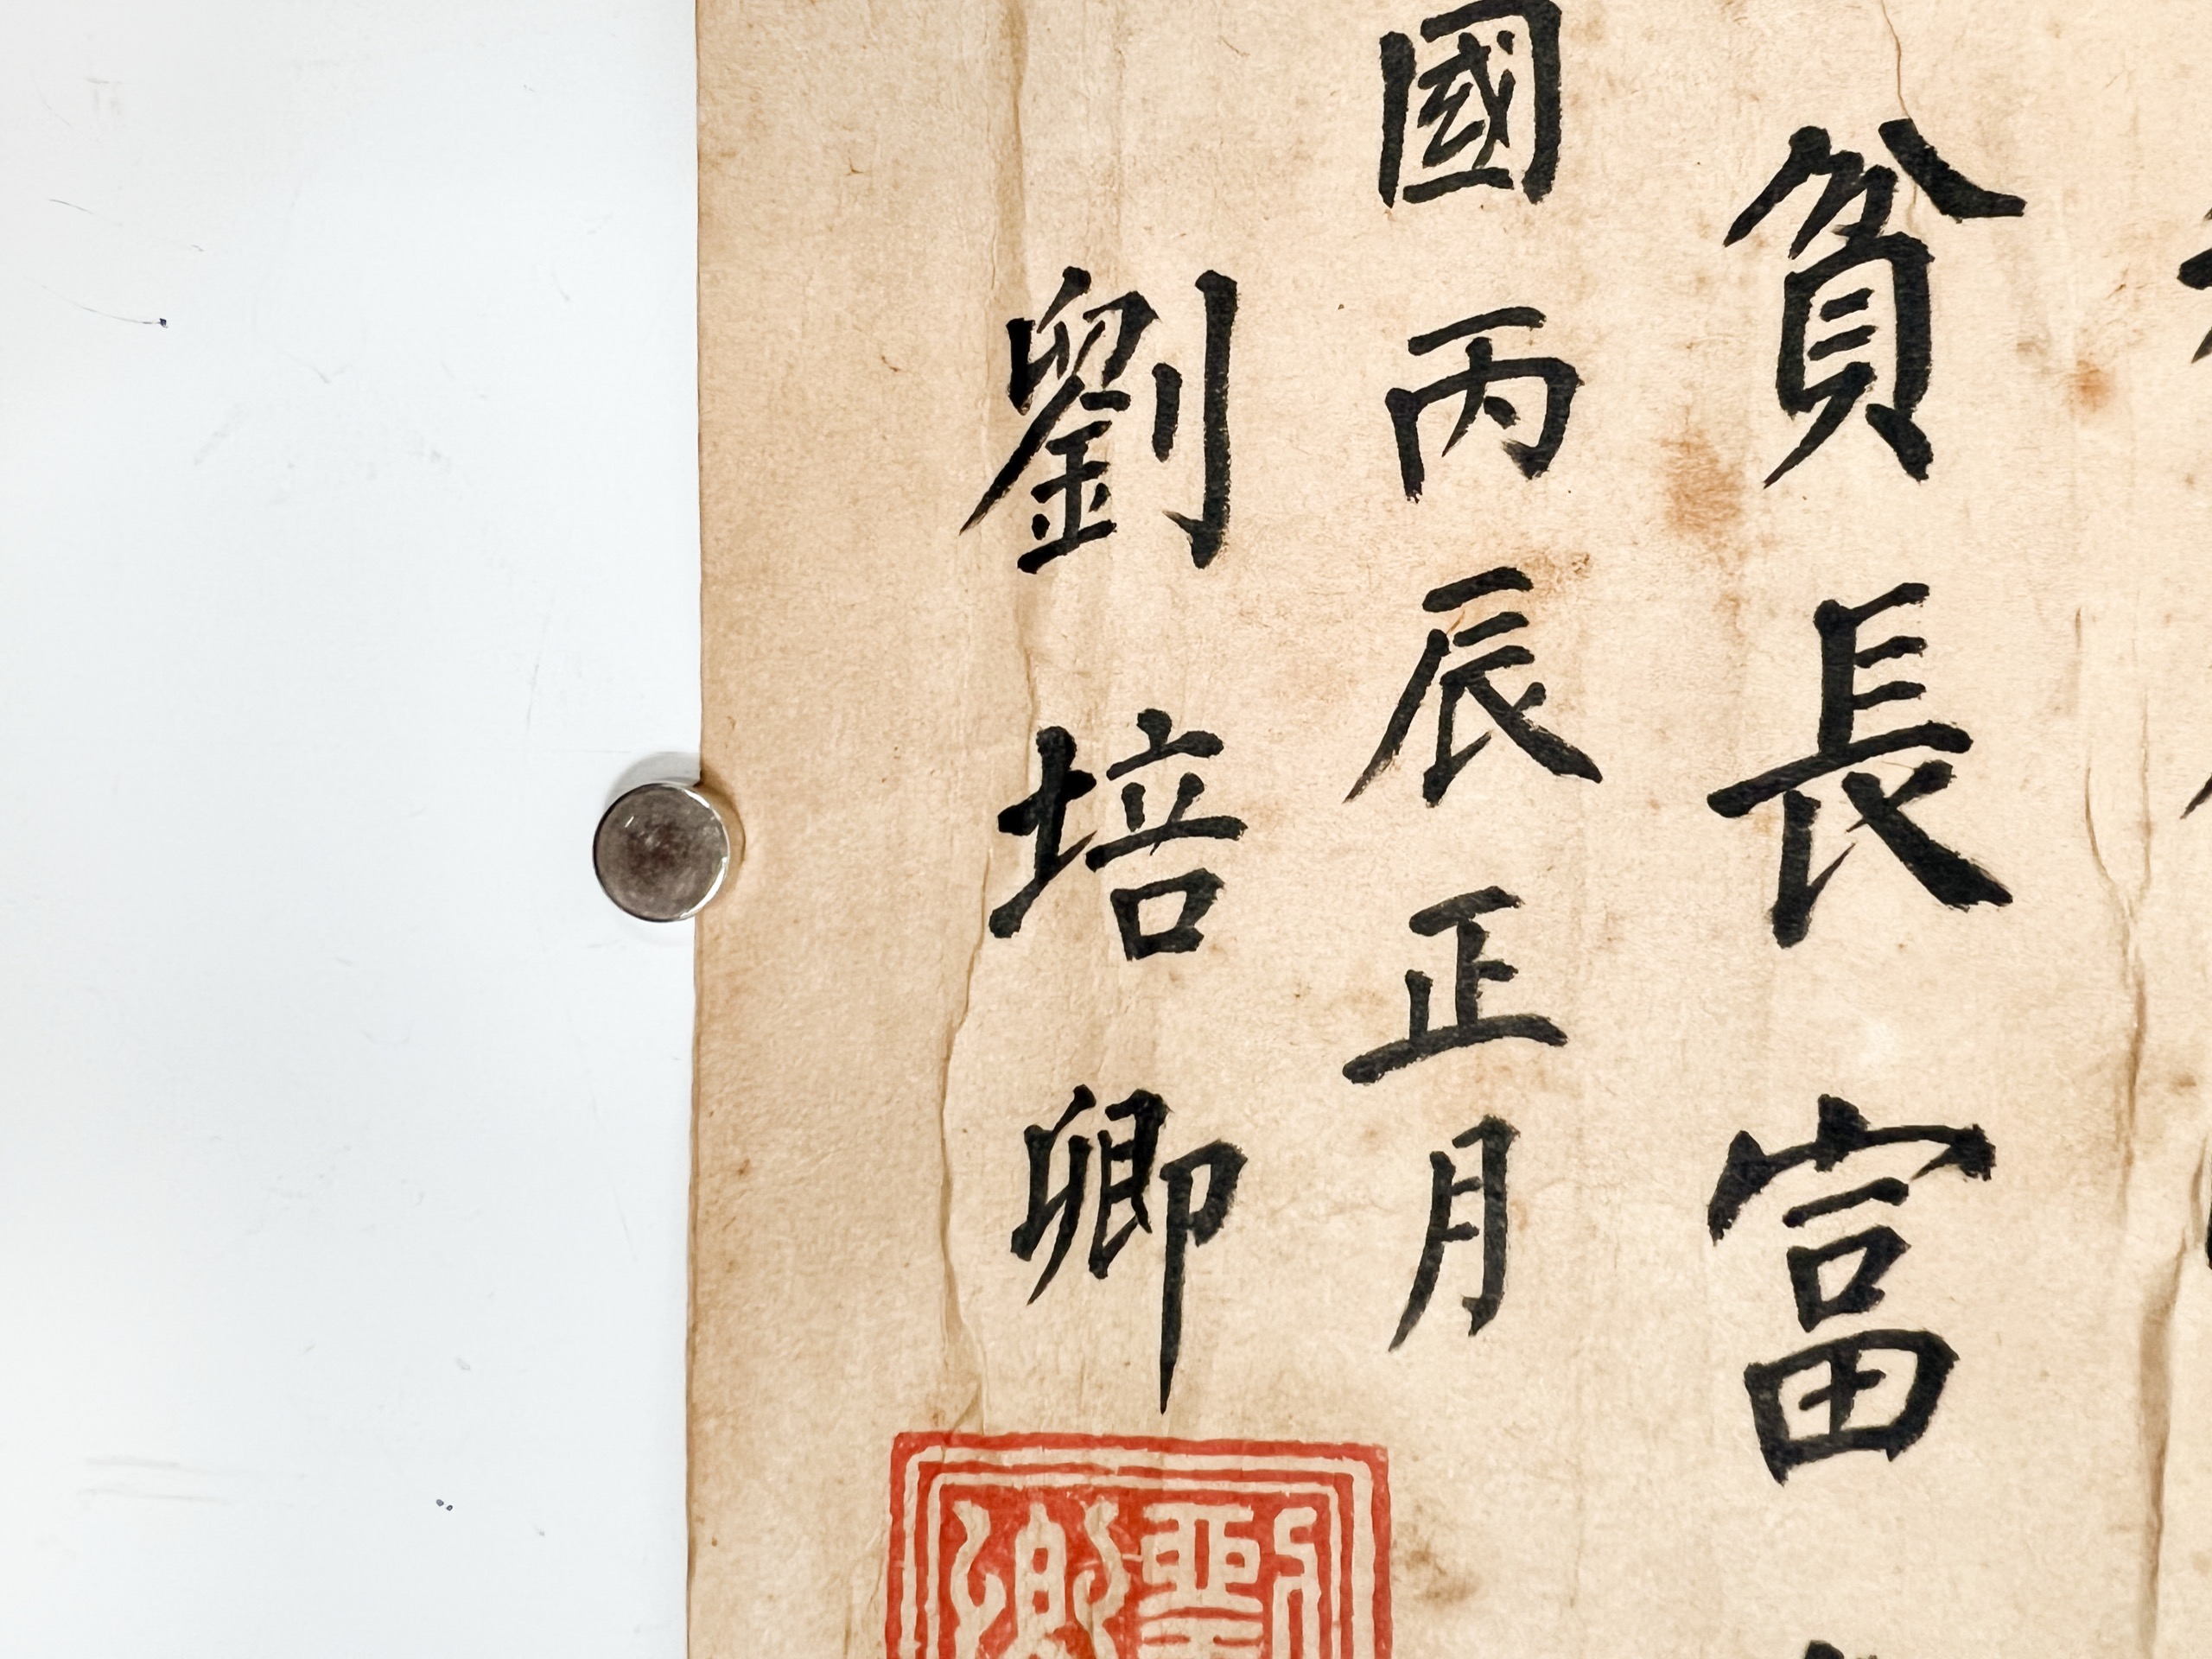 貧長富
國丙辰正月
劉培卿